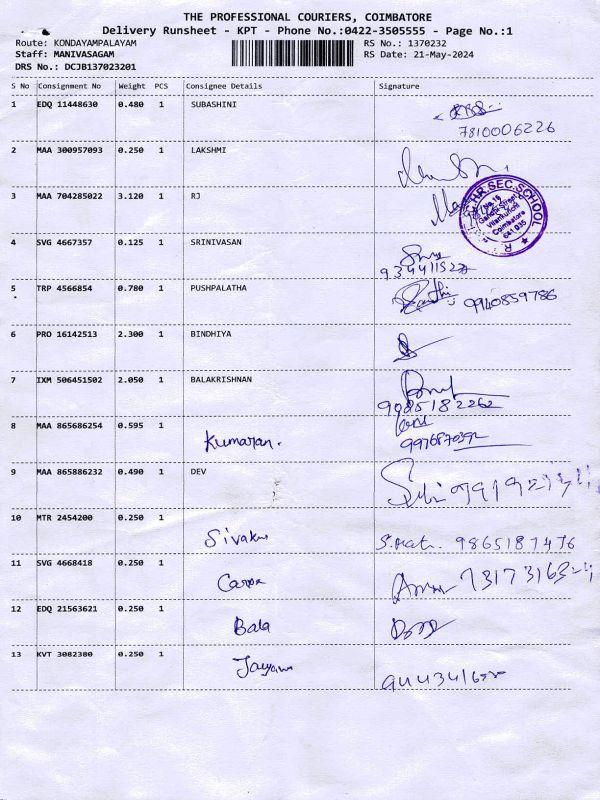 THE PROFESSIONAL COURIERS, COIMBATORE
Delivery Runsheet - KPT - Phone No.:0422-3505555 - Page No.:1
Route: KONDAYAMPALAYAM RS No.: 1370232
Staff: MANIVASAGAM RS Date: 21-May-2024
DRS No.: DCJB137023201
S No Consignment No Weight PCS Consignee Details Signature
1 EDQ 11448630 0.480 1 SUBASHINI
7810006226
2 MAA 300957093 0.250 1 LAKSHMI
3 MAA 704285022 3.120 1 RJ
HR.SEC.SCHOOL
No.16
Street
Coimbatore
641 035
4 SVG 4667357 0.125 1 SRINIVASAN
5 TRP 4566854 0.780 1 PUSHPALATHA
9940859786
6 PRO 16142513 2.300 1 BINDHIYA
7 IXM 506451502 2.050 1 BALAKRISHNAN
9085182262
8 MAA 865686254 0.595 1
Kumaran.
9 MAA 865886232 0.490 1 DEV
10 MTR 2454200 0.250 1
9865187476
11 SVG 4668418 0.250 1
12 EDQ 21563621 0.250 1
Bala
13 KVT 3082380 0.250 1